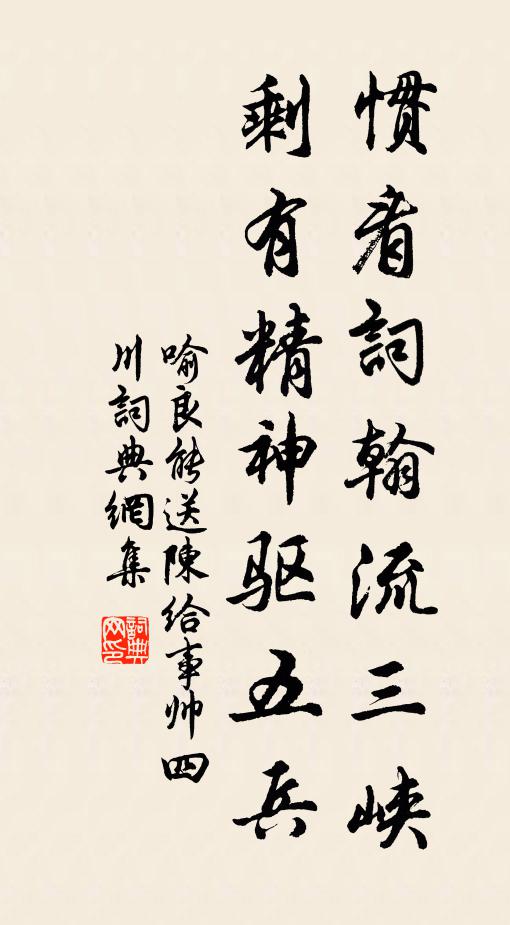 惯看詞翰流三峡
剩有精神驱五兵
喻良能送陳给事帅四
川詞典網集
詞典
网印